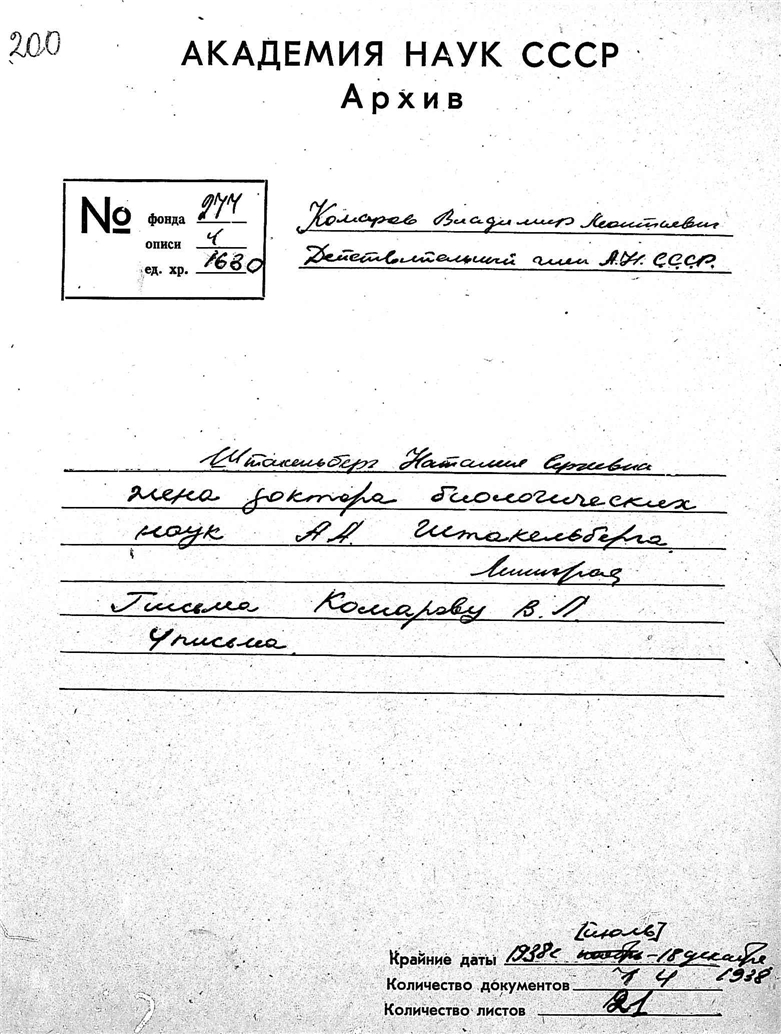 200
АКАДЕМИЯ НАУК СССР
Архив
№
фонда 277
описи 4
ед. хр. 1630
Комаров Владимир Леонтьевич
Действительный член А.Н. СССР.
Штакельберг Наталия Сергеевна
жена доктора биологических
наук А.А. Штакельберга
Ленинград
Письма Комарову В.Л.
4 письма.
[июль]
Крайние даты 1938 с ноябрь - 18 декабря
1938
Количество документов 4
Количество листов 21